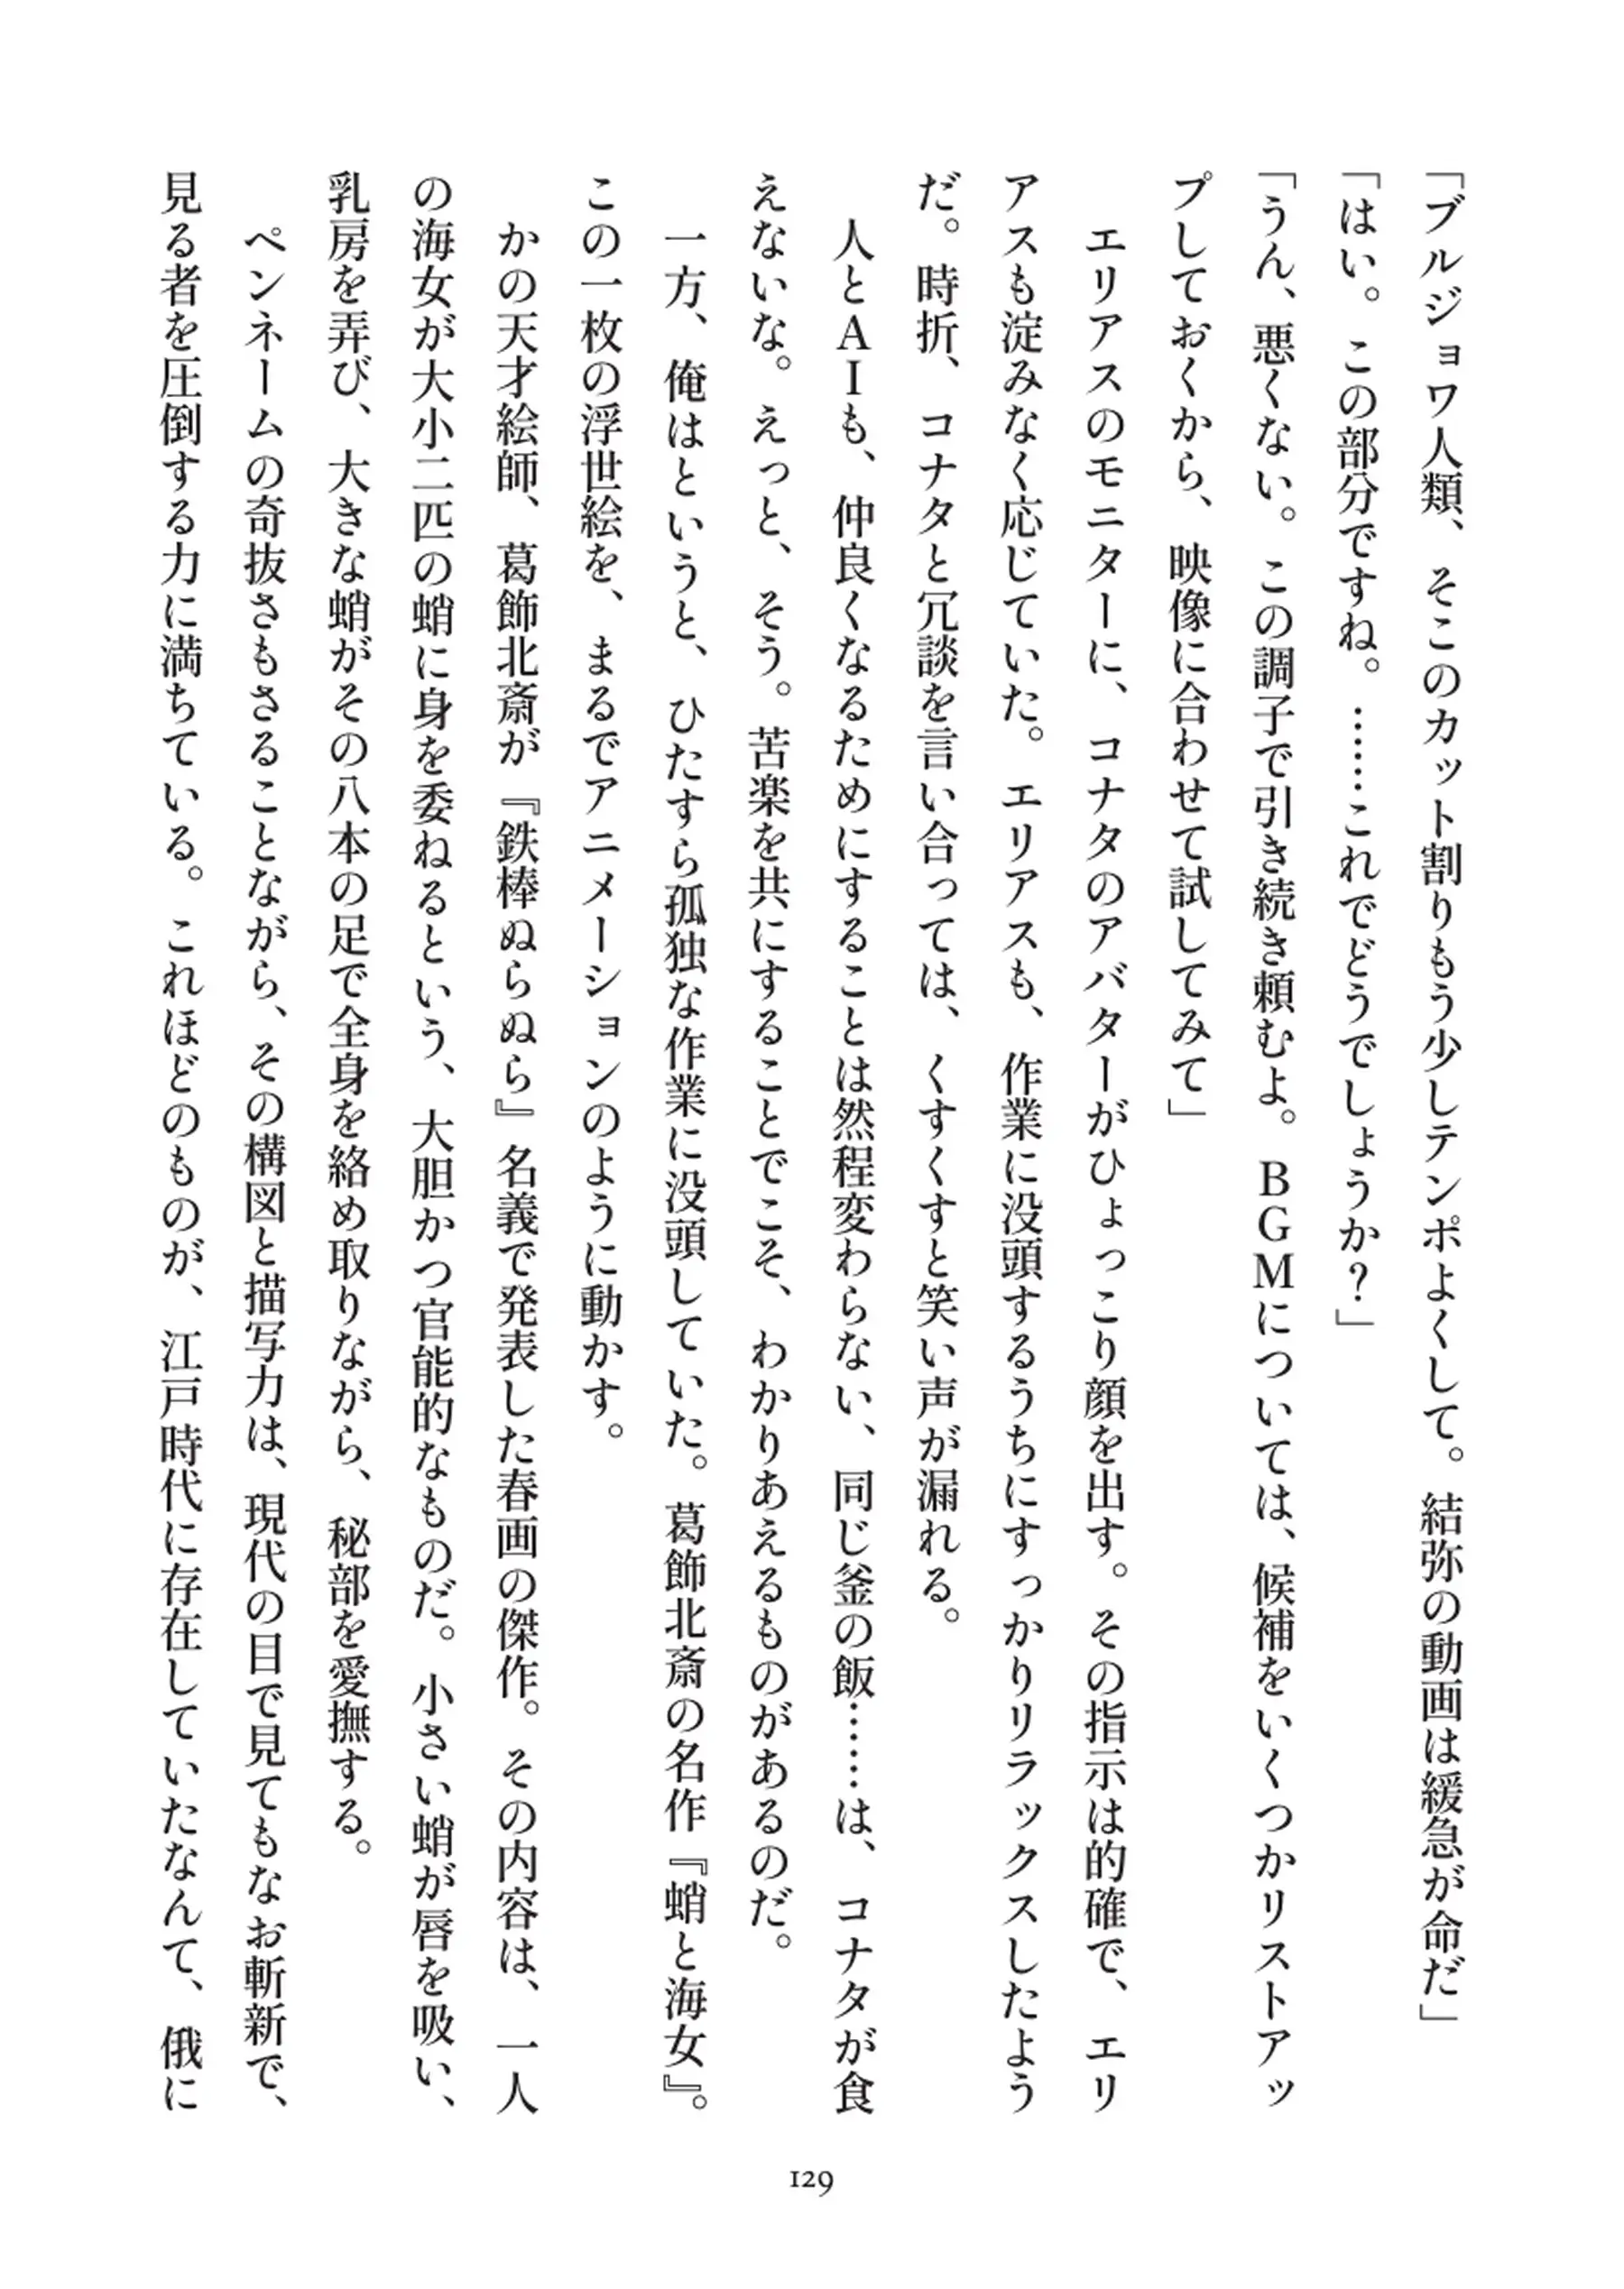 「ブルジョワ人類、そこのカット割りもう少しテンポよくして。結弥の動画は緩急が命だ」
「はい。この部分ですね。……これでどうでしょうか？」
「うん、悪くない。この調子で引き続き頼むよ。BGMについては、候補をいくつかリストアッ
プしておくから、映像に合わせて試してみて」
　エリアスのモニターに、コナタのアバターがひょっこり顔を出す。その指示は的確で、エリ
アスも淀みなく応じていた。エリアスも、作業に没頭するうちにすっかりリラックスしたよう
だ。時折、コナタと冗談を言い合っては、くすくすと笑い声が漏れる。
　人とAIも、仲良くなるためにすることは然程変わらない、同じ釜の飯……は、コナタが食
えないな。えっと、そう。苦楽を共にすることでこそ、わかりあえるものがあるのだ。
　一方、俺はというと、ひたすら孤独な作業に没頭していた。葛飾北斎の名作『蛸と海女』。
この一枚の浮世絵を、まるでアニメーションのように動かす。
　かの天才絵師、葛飾北斎が『鉄棒ぬらぬら』名義で発表した春画の傑作。その内容は、一人
の海女が大小二匹の蛸に身を委ねるという、大胆かつ官能的なものだ。小さい蛸が唇を吸い、
乳房を弄び、大きな蛸がその八本の足で全身を絡め取りながら、秘部を愛撫する。
　ペンネームの奇抜さもさることながら、その構図と描写力は、現代の目で見てもなお斬新で、
見る者を圧倒する力に満ちている。これほどのものが、江戸時代に存在していたなんて、俄に
129